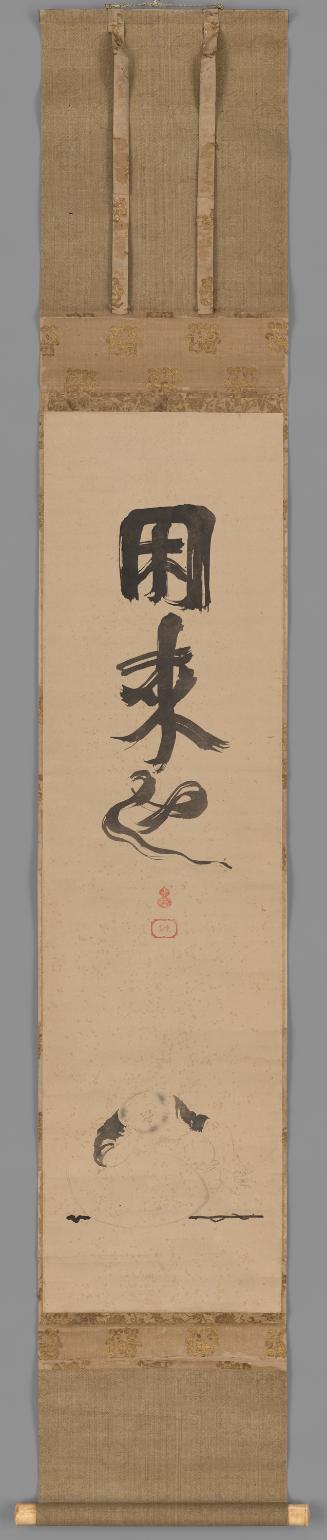 困
来
也